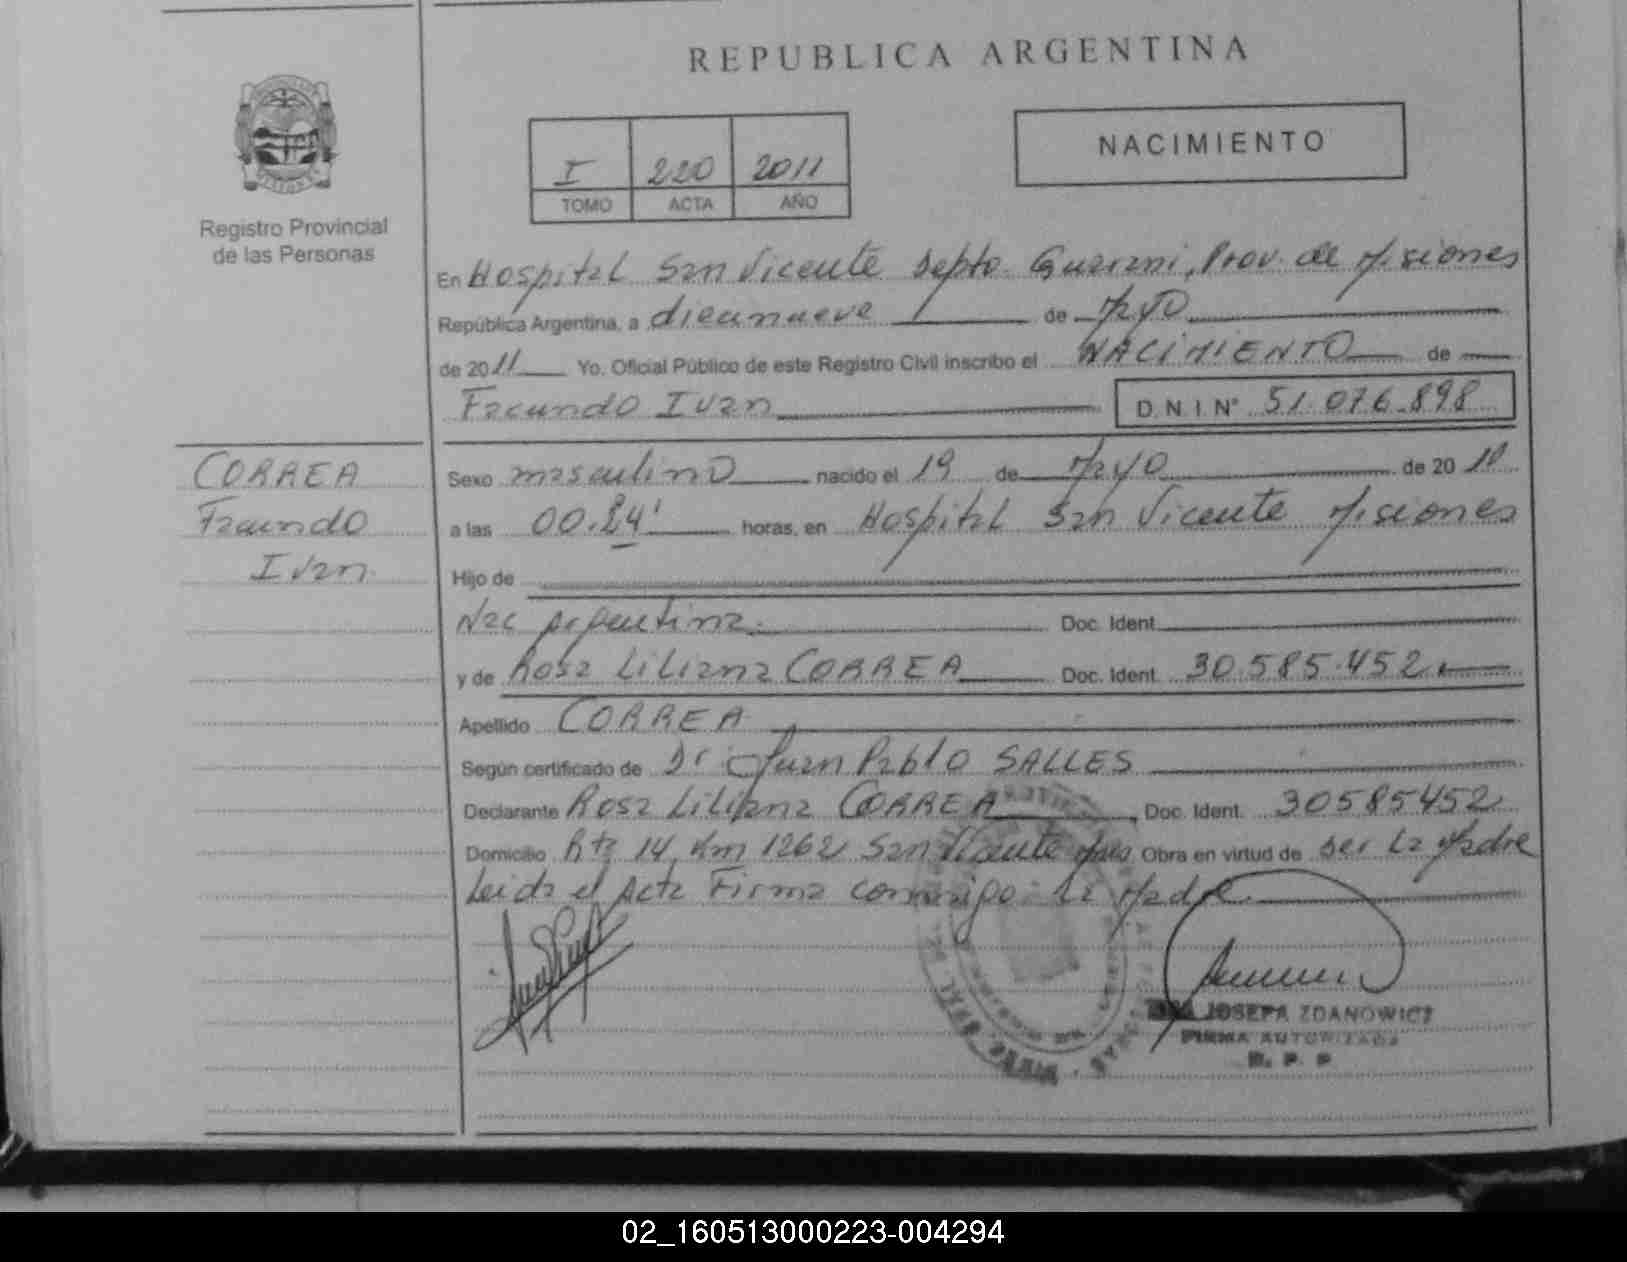 REPUBLICA ARGENTINA
I 220 2011
TOMO ACTA AÑO
NACIMIENTO
Registro Provincial
de las Personas
En Hospital San Vicente Depto. Guarani, Prov. de Misiones
República Argentina, a diecinueve de Mayo
de 2011 Yo, Oficial Público de este Registro Civil inscribo el NACIMIENTO de
Facundo Ivan D.N.I. N° 51.076.898
CORREA
Facundo
Ivan
Sexo masculino nacido el 19 de Mayo de 20
a las 00.24' horas, en Hospital San Vicente Misiones
Hijo de
Nac Argentina. Doc. Ident.
y de Rosa Liliana CORREA Doc. Ident. 30.585.452
Apellido CORREA
Según certificado de Dr Juan Pablo SALLES
Declarante Rosa Liliana CORREA, Doc. Ident. 30585452
Domicilio Rta 14, Km 1262 San Vicente Mnes Obra en virtud de ser La Madre
Leida el Acta Firma conmigo: La Madre
JOSEFA ZDANOWICZ
FIRMA AUTORIZADA
R. P. P
02_160513000223-004294